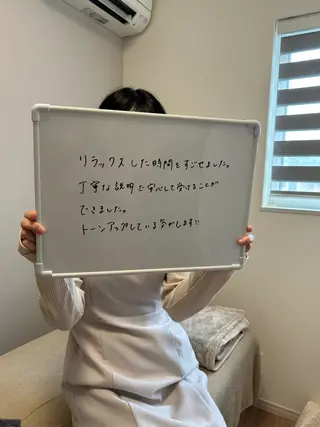 リラックスした時間をすごせました。
丁寧な説明で安心して受けることが
できました。
トーンアップしている気がします!!